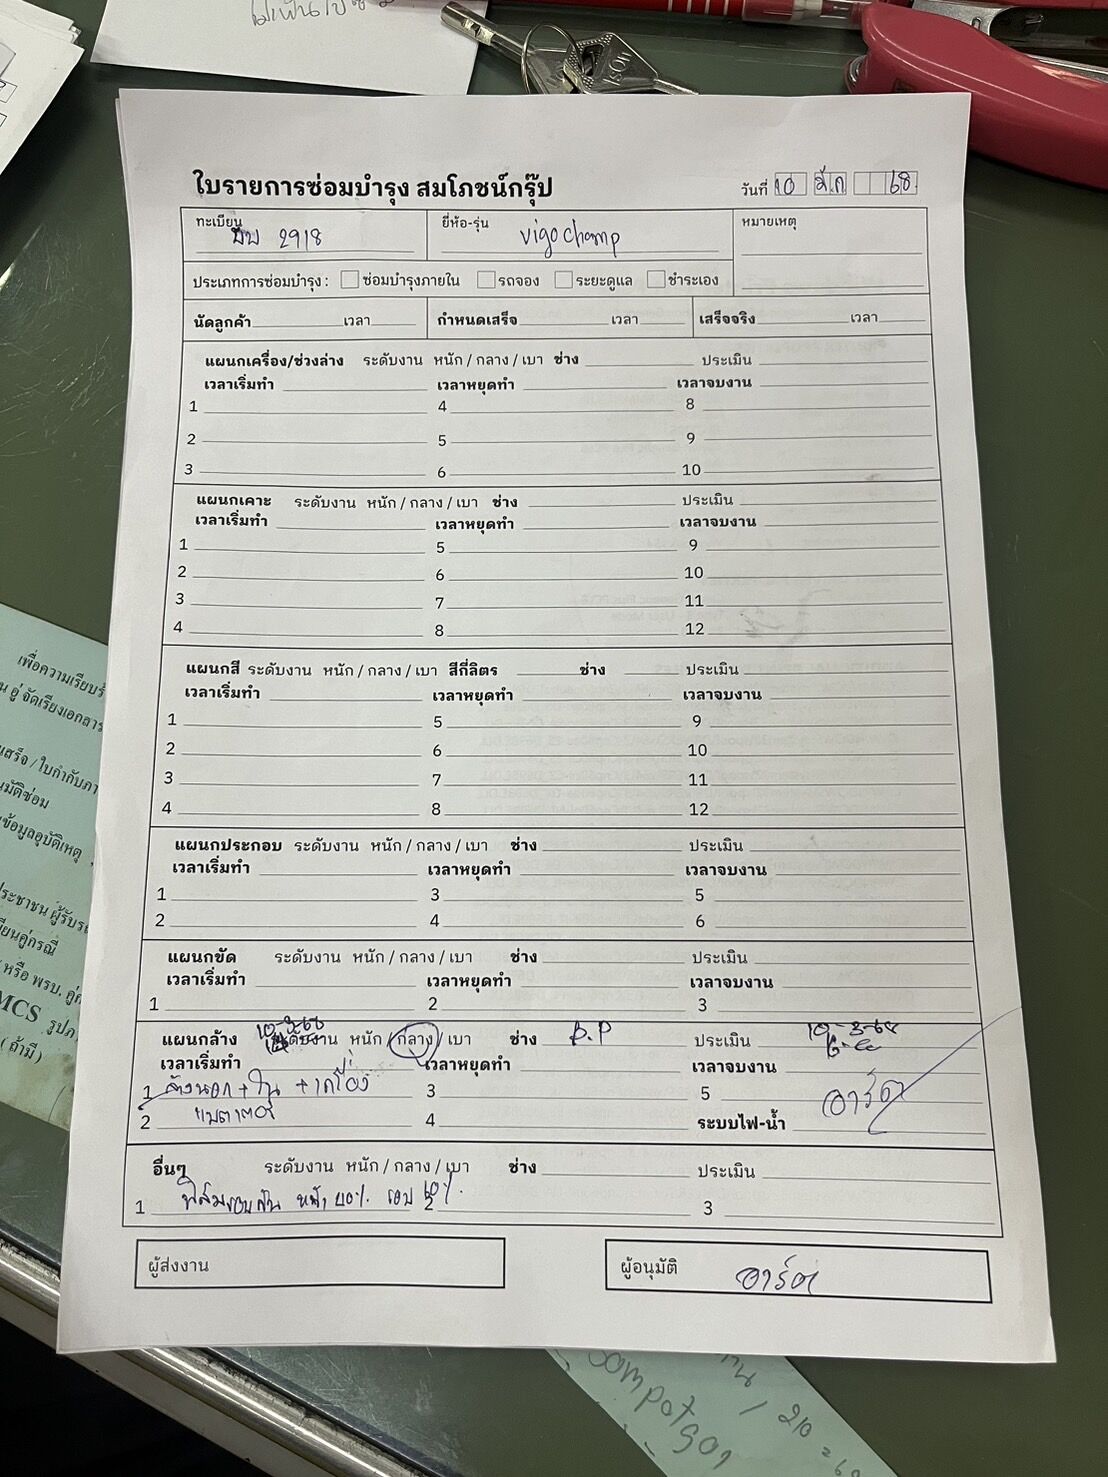 ใบรายการซ่อมบำรุง สมโภชน์กรุ๊ป
วันที่ 10 มี.ค 68
ทะเบียน 2918
ยี่ห้อ-รุ่น vigo champ
หมายเหตุ
ประเภทการซ่อมบำรุง : ซ่อมบำรุงภายใน รถจอง ระยะดูแล ชำระเอง
นัดลูกค้า เวลา กำหนดเสร็จ เวลา เสร็จจริง เวลา
แผนกเครื่อง/ช่วงล่าง ระดับงาน หนัก / กลาง / เบา ช่าง ประเมิน
เวลาเริ่มทำ เวลาหยุดทำ เวลาจบงาน
1 4 8
2 5 9
3 6 10
แผนกเคาะ ระดับงาน หนัก / กลาง / เบา ช่าง ประเมิน
เวลาเริ่มทำ เวลาหยุดทำ เวลาจบงาน
1 5 9
2 6 10
3 7 11
4 8 12
แผนกสี ระดับงาน หนัก / กลาง / เบา สีกี่ลิตร ช่าง ประเมิน
เวลาเริ่มทำ เวลาหยุดทำ เวลาจบงาน
1 5 9
2 6 10
3 7 11
4 8 12
แผนกประกอบ ระดับงาน หนัก / กลาง / เบา ช่าง ประเมิน
เวลาเริ่มทำ เวลาหยุดทำ เวลาจบงาน
1 3 5
2 4 6
แผนกขัด ระดับงาน หนัก / กลาง / เบา ช่าง ประเมิน
เวลาเริ่มทำ เวลาหยุดทำ เวลาจบงาน
1 2 3
แผนกล้าง 10-3-68 ระดับงาน หนัก / กลาง / เบา ช่าง B.P ประเมิน 10-3-68
เวลาเริ่มทำ เวลาหยุดทำ เวลาจบงาน
1 ล้างนอก + ใน + เครื่อง 3 5 อาร์ต
2 แบตเตอรี่ 4 ระบบไฟ-น้ำ
อื่นๆ ระดับงาน หนัก / กลาง / เบา ช่าง ประเมิน
1 ฟิล์มรอบคัน หน้า 40% รอบ 60% 2 3
ผู้ส่งงาน
ผู้อนุมัติ อาร์ต
เพื่อความเรียบร้
อู่ จัดเรียงเอกสาร
เสร็จ / ใบกำกับภา
มัติซ่อม
ข้อมูลอุบัติเหตุ
ประชาชน ผู้รับร
ยียนคู่กรณี
หรือ พรบ. คู่
MCS รูปภ
( ถ้ามี )
/ 210